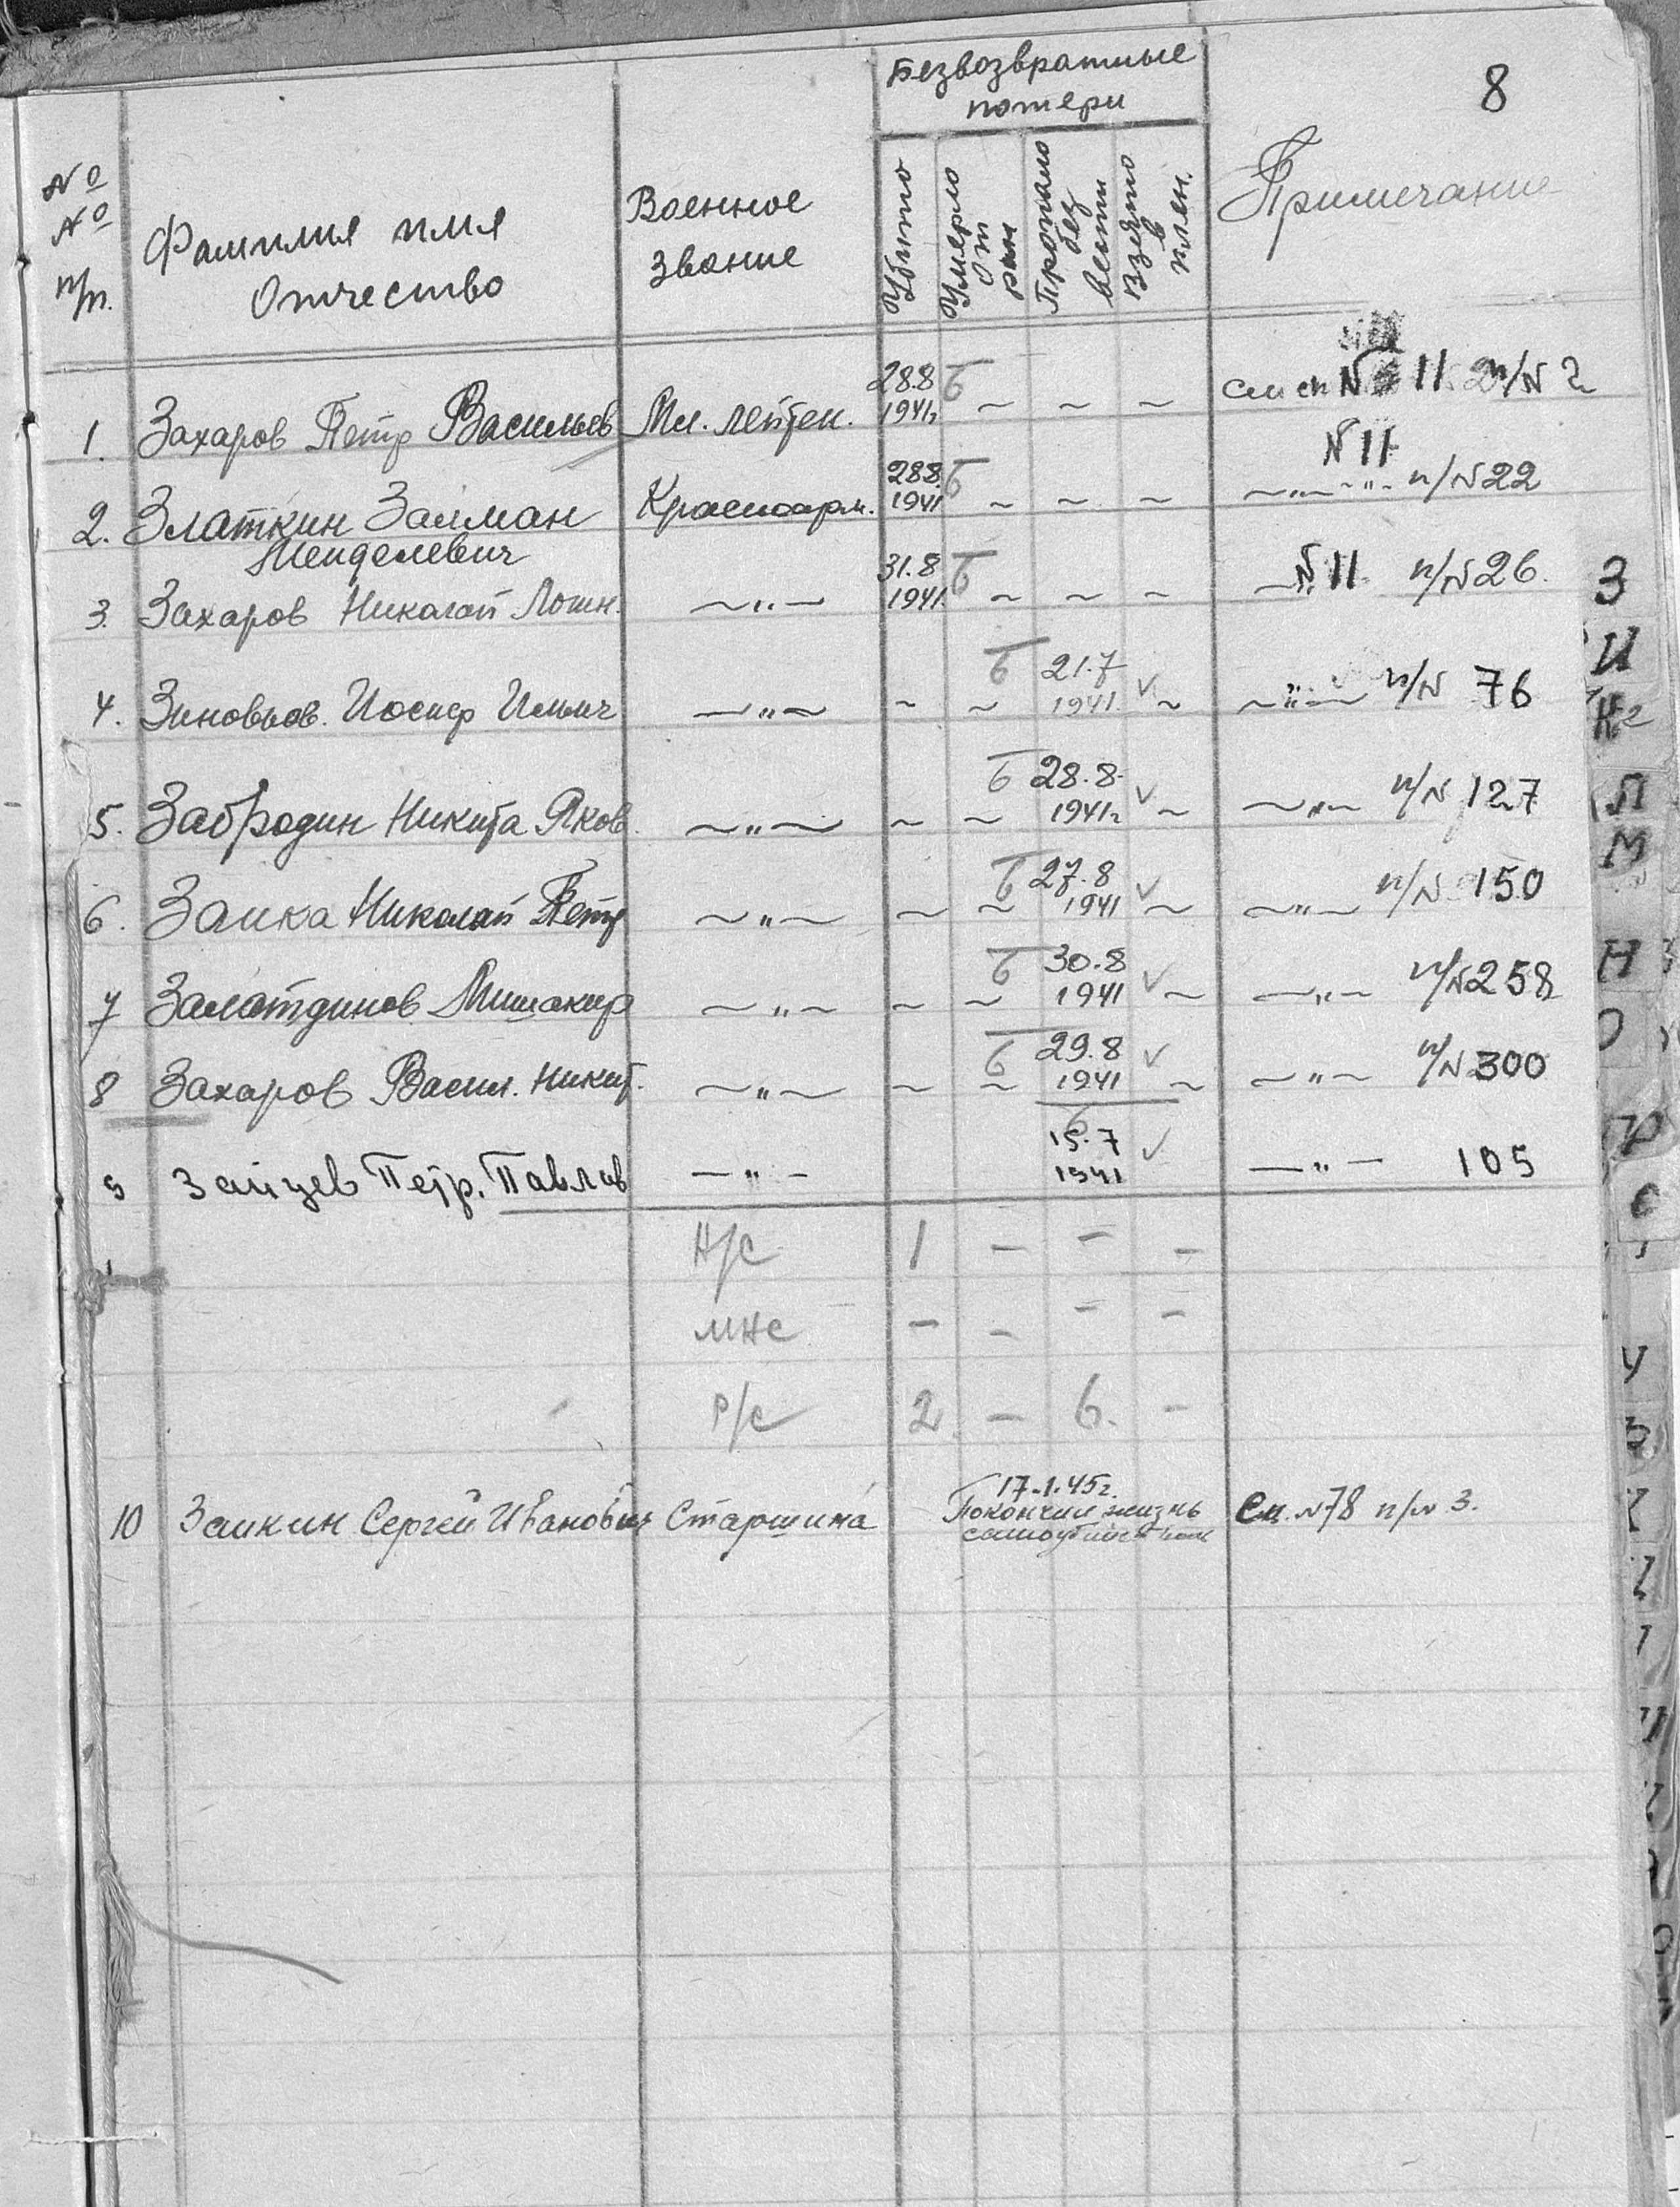 8
Безвозвратные
потери
№
№
п/п.
Фамилия имя
Отчество
Военное
звание
Убито
Умерло
от
ран
Пропало
без
вести
Взято
в
плен.
Примечание
1. Захаров Петр Васильев Мл. лейтен. 28.8 1941г ~ ~ ~ N 11 п/N 2
2. Златкин Залман Менделевич Красноарм. 28.8. 1941 ~ ~ ~ N 11 —„— п/N 22
3. Захаров Николай —„— 31.8 1941. ~ ~ ~ N 11. п/N 26.
4. Зиновьов. Иосиф Ильич —„— ~ ~ 21.7 1941. ✓ ~ —„— п/N 76
5. Забродин Никита Яков. —„— ~ ~ 28.8 1941г ✓ ~ —„— п/N 127
6. Заика Николай Петр —„— ~ ~ 27.8 1941 ✓ ~ —„— п/N 150
7 Залатдинов Мишакир —„— ~ ~ 30.8 1941 ✓ ~ —„— п/N 258
8 Захаров Васил. Никит. —„— ~ ~ 29.8 1941 ✓ ~ —„— п/N 300
9 Зайцев Петр. Павлов —„— 15.7 1941 ✓ —„— 105
Н/С 1 — — —
МНС — — — —
Р/С 2 — 6. —
10 Заикин Сергей Иванович Старшина 17.1.45г. Покончил жизнь самоубийством Сп. N78 п/N 3.
З
И
К
Л
М
Н
О
П
Р
С
У